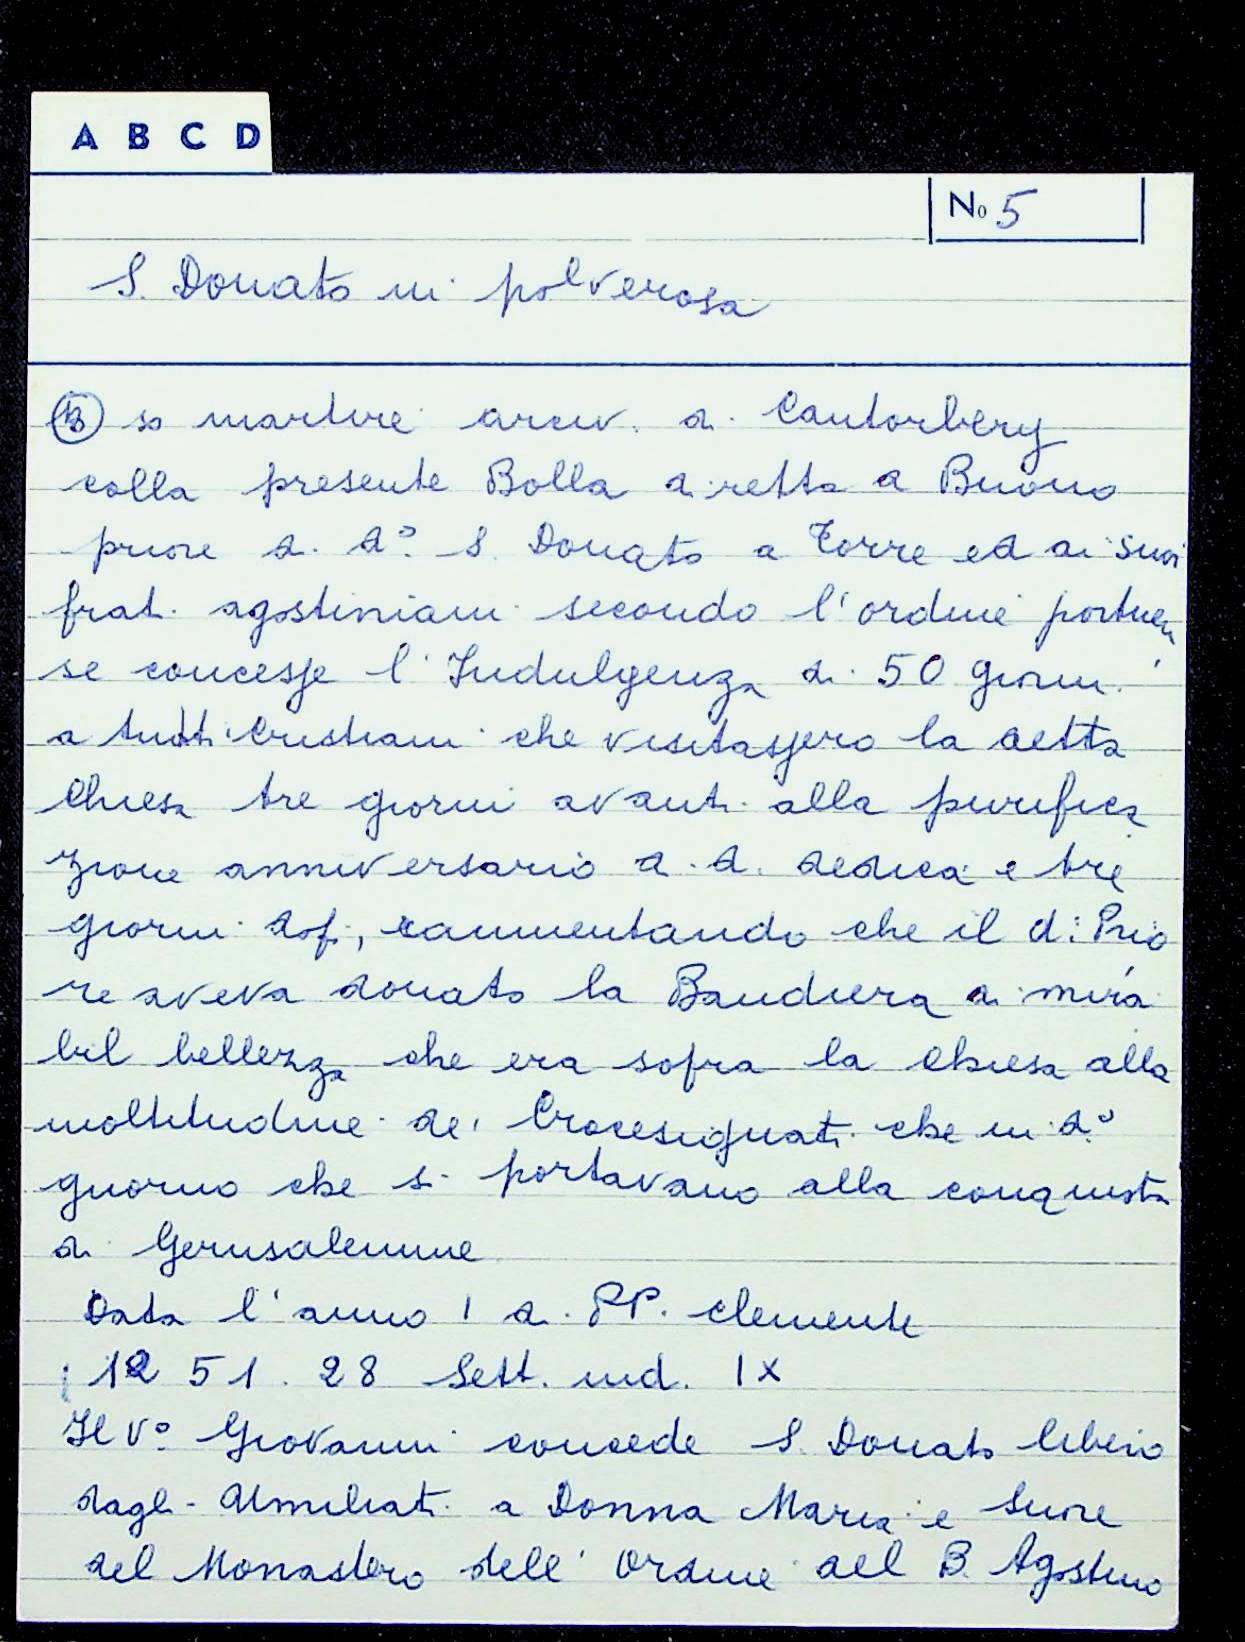 A B C D
No 5
S. Donato in polverosa
B so martire arciv. di Cantorbery
colla presente Bolla diretta a Buono
priore di do. S. Donato a Torre ed ai suoi
frati agostiniani secondo l'ordine portuen
se concesse l'Indulgenza di 50 giorni
a tutti Cristiani che visitassero la detta
Chiesa tre giorni avanti alla purifica
zione anniversario di d. dedica e tre
giorni dop., rammentando che il d: Prio
re aveva donato la Bandiera di mira
bil bellezza che era sopra la Chiesa alla
moltitudine dei Crocesignati che in do.
giorno che si portavano alla conquista
di Gerusalemme
Data l'anno 1 di PP. Clemente
1251. 28 Sett. ind. IX
Il Vo. Giovanni concede S. Donato libero
dagli Umiliati a Donna Maria e Suore
del Monastero dell'Ordine del B. Agostino